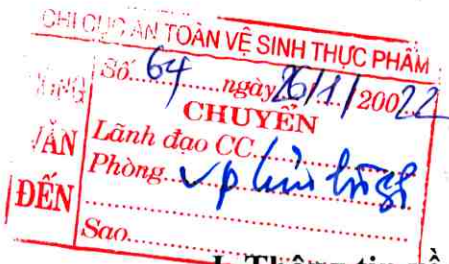 CHI CỤC AN TOÀN VỆ SINH THỰC PHẨM
VĂN
ĐẾN
Số 64 ngày 26/1/20022
CHUYỂN
Lãnh đạo CC
Phòng VP
Sao
I. Thông tin